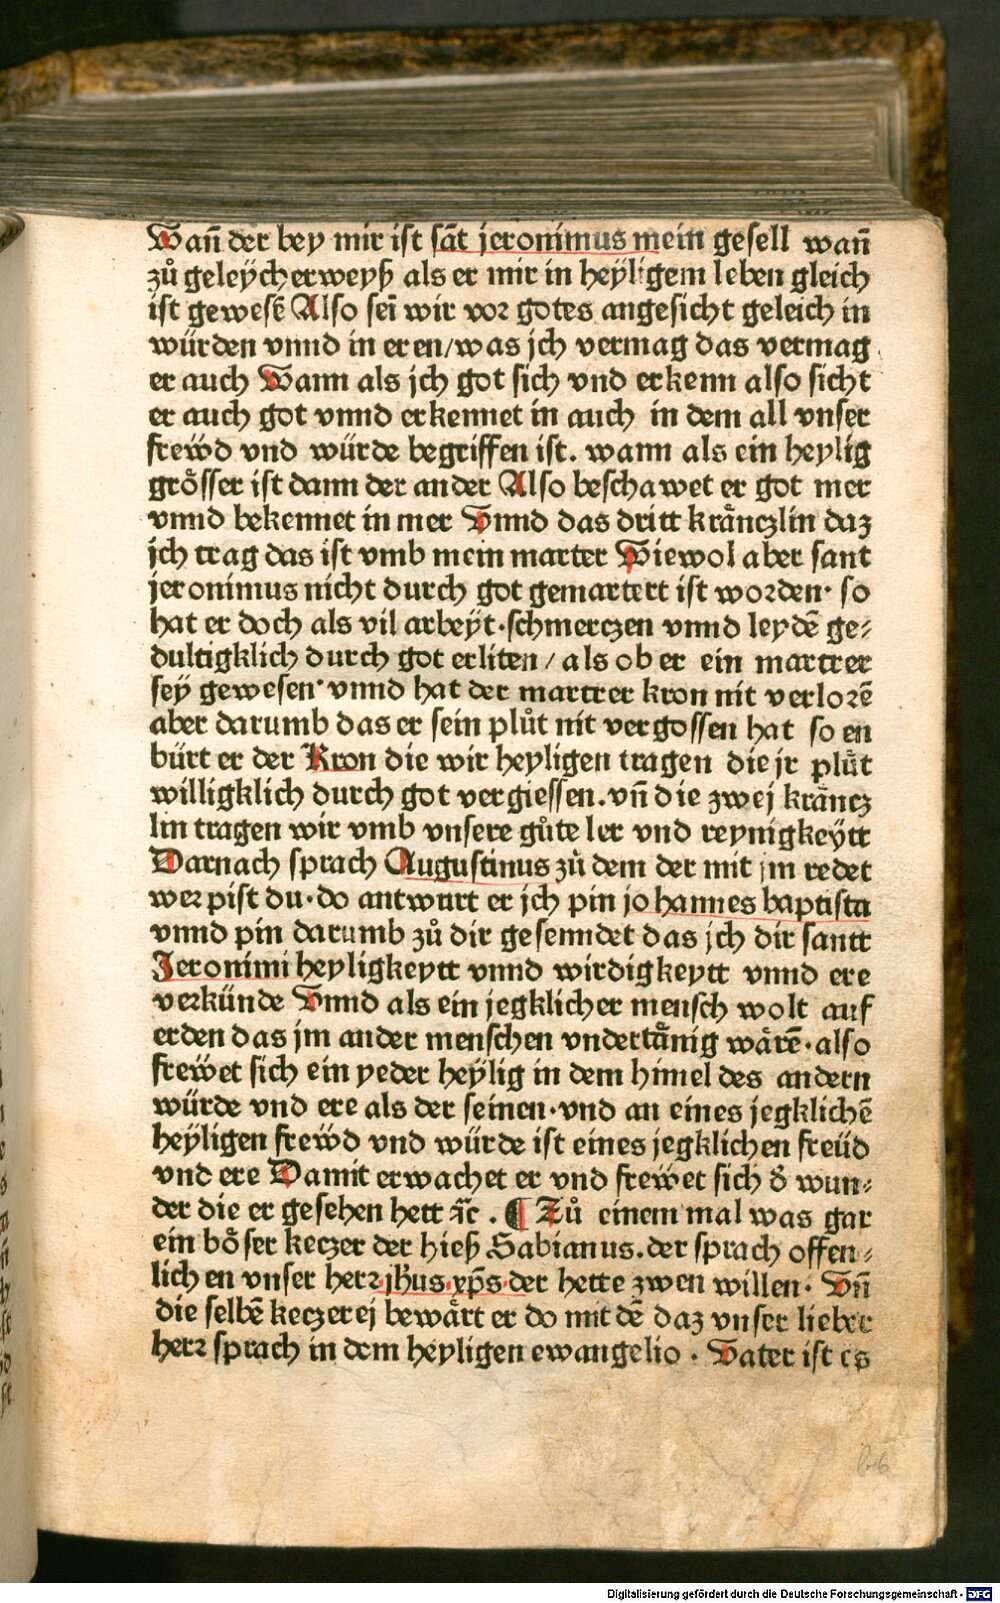 Wañ der bey mir ist sãt jeronimus mein gesell wañ
zů geleÿcherweyß als er mir in heÿligem leben gleich
ist gewesẽ Also seĩ wir vor gotes angesicht geleich in
würden vnnd in eren/was jch vermag das vermag
er auch Wann als jch got sich vnd erkenn also sicht
er auch got vnnd erkennet in auch in dem all vnser
frewd vnd würde begriffen ist. wann als ein heylig
grösser ist dann der ander Also beschawet er got mer
vnnd bekennet in mer Vnnd das dritt kränczlin daz
jch trag das ist vmb mein marter Wiewol aber sant
jeronimus nicht durch got gemartert ist worden· so
hat er doch als vil arbeÿt·schmerczen vnnd leydẽ ge⸗
dultigklich durch got erliten/als ob er ein martrer
seÿ gewesen·vnnd hat der martrer kron nit verlorẽ
aber darumb das er sein plůt nit vergossen hat so en
bürt er der Kron die wir heyligen tragen die jr plůt
willigklich durch got vergiessen.vñ die zwej kräncz
lin tragen wir vmb vnsere gůte ler vnd reynigkeÿtt
Darnach sprach Augustinus zů dem der mit jm redet
wer pist du·do antwurt er jch pin johannes baptista
vnnd pin darumb zů dir gesenndet das jch dir santt
Jeronimi heyligkeytt vnnd wirdigkeytt vnnd ere
verkünde Vnnd als ein jegklicher mensch wolt auf
erden das jm ander menschen vndertänig wärẽ·also
frewet sich ein yeder heÿlig in dem himel des andern
würde vnd ere als der seinen·vnd an eines jegklichẽ
heÿligen frewd vnd würde ist eines jegklichen freüd
vnd ere Damit erwachet er vnd frewet sich ď wun⸗
der die er gesehen hett ⁊c̃. ¶ Zů einem mal was gar
ein böser keczer der hieß Sabianus.der sprach offen⸗
lichen vnser herr·jhūs·xp̄s·der hette zwen willen· Vñ
die selbẽ keczerej bewärt er do mit dẽ daz vnser lieber
herr sprach in dem heyligen ewangelio. Vater ist es
66
Digitalisierung gefördert durch die Deutsche Forschungsgemeinschaft - DFG